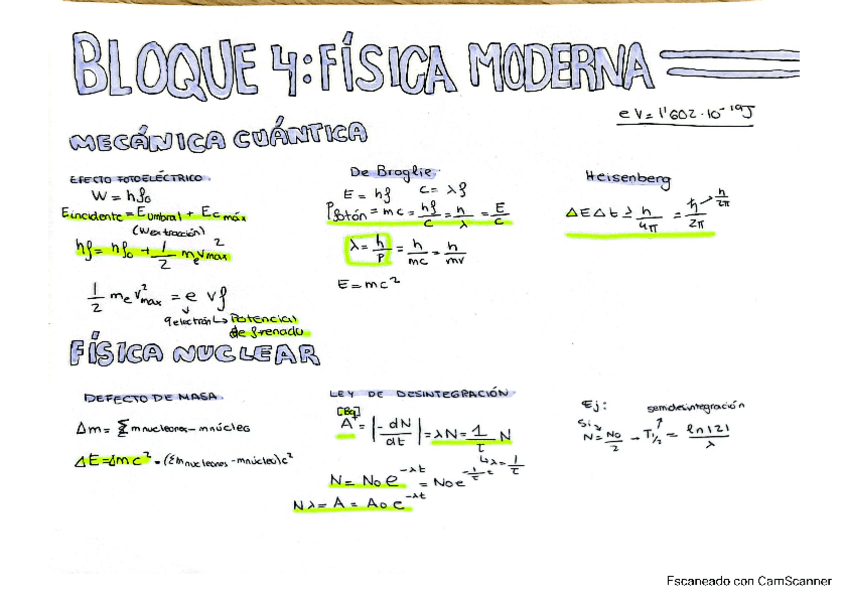 BLOQUE 4: FÍSICA MODERNA
eV = 1'602·10⁻¹⁹J
MECÁNICA CUÁNTICA
EFECTO FOTOELÉCTRICO.
W = hf₀
Eincidente = Eumbral + Ec máx
(Wextracción)
hf = hf₀ + 1/2 me vmax²
1/2 me v²max = e Vf
qelectrón ↳ Potencial
de frenado
De Broglie.
E = hf c = λf
Pfotón = mc = hf/c = h/λ = E/c
λ = h/p = h/mc = h/mv
E = mc²
Heisenberg
ΔEΔt ≥ h/4π = ħ/2π → h/2π
FÍSICA NUCLEAR
DEFECTO DE MASA.
Δm = Σ mnucleones - mnúcleo
ΔE = Δmc² = (Σmnucleones - mnúcleo)c²
LEY DE DESINTEGRACIÓN
[Bq]
A = |-dN/dt| = λN = 1/τ N
↳ λ = 1/τ
N = N₀e^-λt = N₀e^-1/τ t
Nλ = A = A₀e^-λt
Ej: semidesintegración
Si
N = N₀/2 → T1/2 = ln|2|/λ
Escaneado con CamScanner